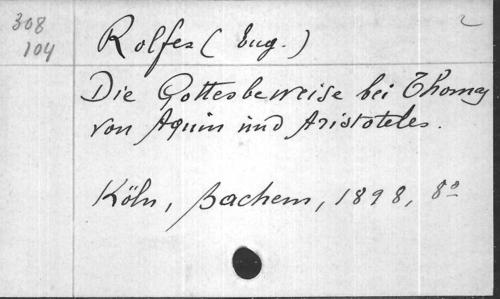 308
104
Rolfes (Eug.)
Die Gottesbeweise bei Thomas
von Aquin und Aristoteles.
Köln, Bachem, 1898, 8°